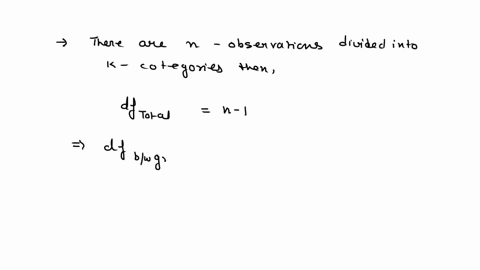 → There are n - observations divided into
k - categories then,
df Total = n-1
⇒ df b/w gr